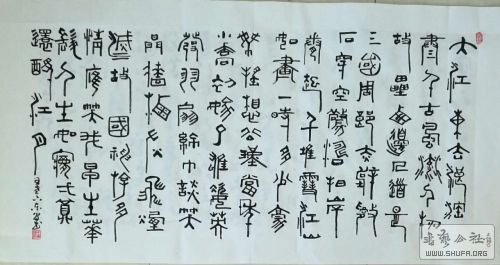 大江東去浪淘
盡千古風流人物
故壘西邊人道是
三國周郎赤壁亂
石穿空驚濤拍岸
捲起千堆雪江山
如畫一時多少豪
傑遙想公瑾當年
小喬初嫁了雄姿英
發羽扇綸巾談笑
間檣櫓灰飛煙
滅故國神遊多
情應笑我早生華
髮人生如夢一尊
還酹江月
书艺公社
WWW.SHUFA.ORG